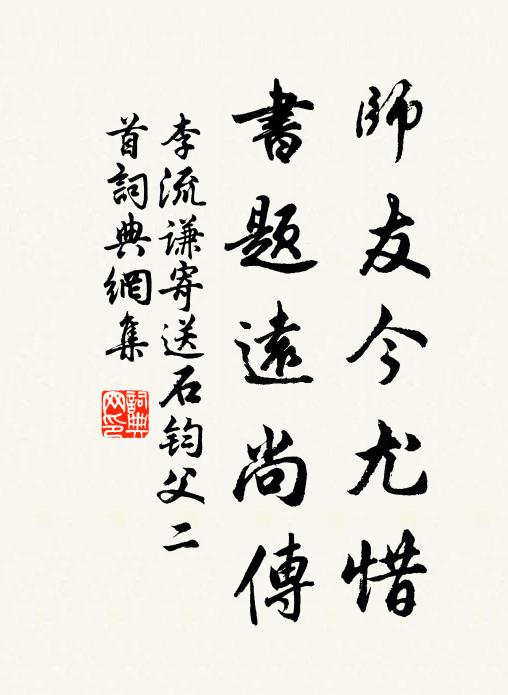 師友今尤惜
書題遠尚傳
李流謙寄送石鈞父二
首詞典網集
詞典
网印